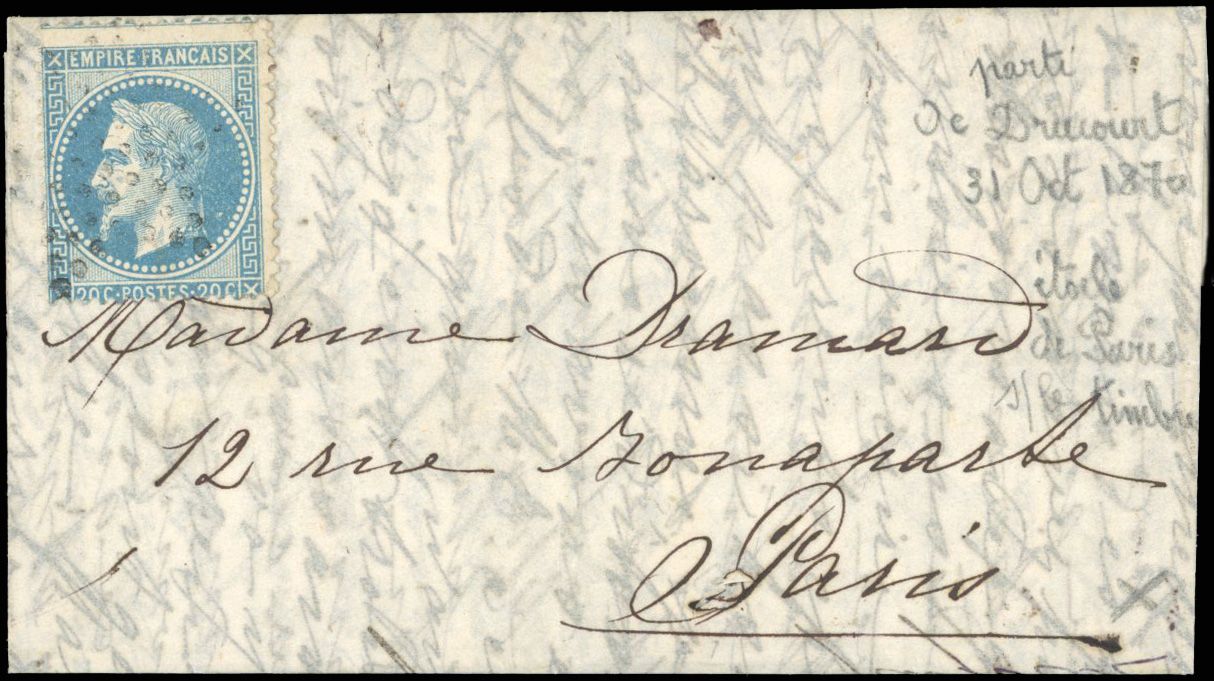 EMPIRE FRANÇAIS
20C·POSTES·20C
parti
De Drucourt
31 Oct 1870
étoile
de Paris
s/le timbre
Madame Dramard
12 rue Bonaparte
Paris